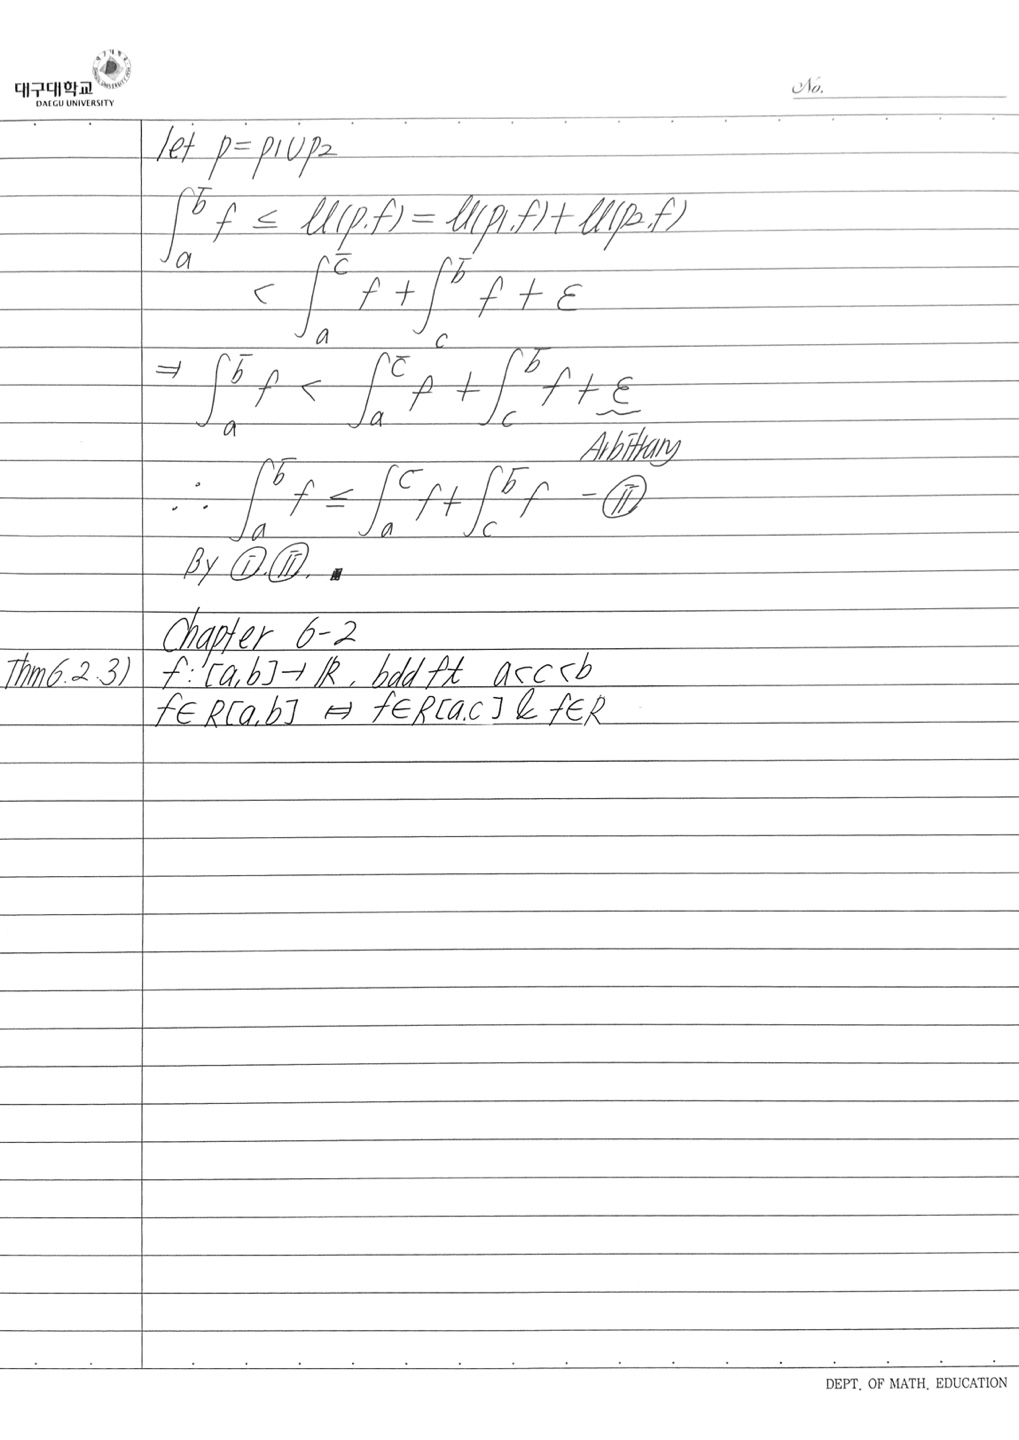 대구대학교
DAEGU UNIVERSITY
No.
let p=p1∪p2
∫_a^b̄ f ≤ U(p.f) = U(p1.f) + U(p2.f)
< ∫_a^c̄ f + ∫_c^b̄ f + ε
⇒ ∫_a^b̄ f < ∫_a^c̄ f + ∫_c^b̄ f + ε
Arbitrary
∴ ∫_a^b̄ f ≤ ∫_a^c̄ f + ∫_c^b̄ f - Ⅱ
By Ⅰ.Ⅱ. ∎
Chapter 6-2
Thm6.2.3) f:[a,b]→ℝ, bdd ft a<c<b
f∈R[a,b] ⇔ f∈R[a.c] & f∈R
DEPT. OF MATH. EDUCATION